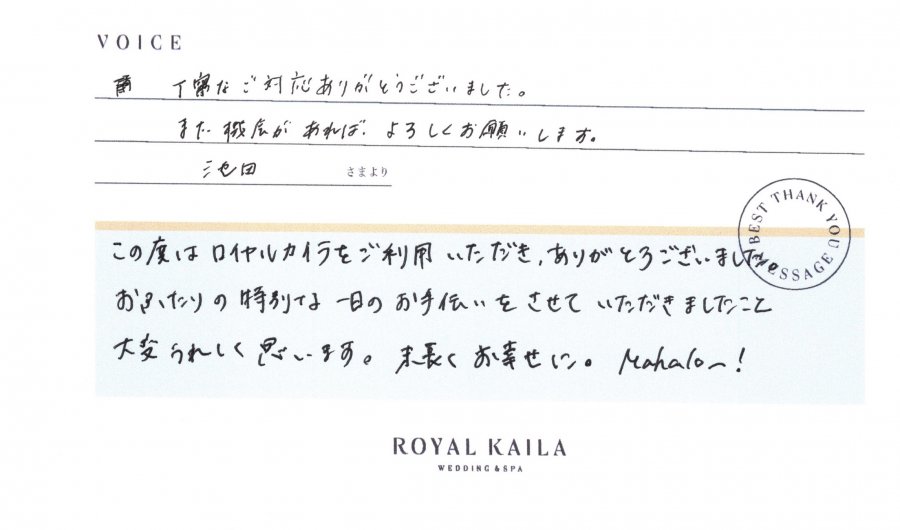 VOICE
丁寧なご対応ありがとうございました。
また機会があれば、よろしくお願いします。
池田 さまより
BEST THANK YOU MESSAGE
この度はロイヤルカイラをご利用いただき、ありがとうございました。
おふたりの特別な一日のお手伝いをさせていただきましたこと
大変うれしく思います。末長くお幸せに。Mahalo~!
ROYAL KAILA
WEDDING & SPA